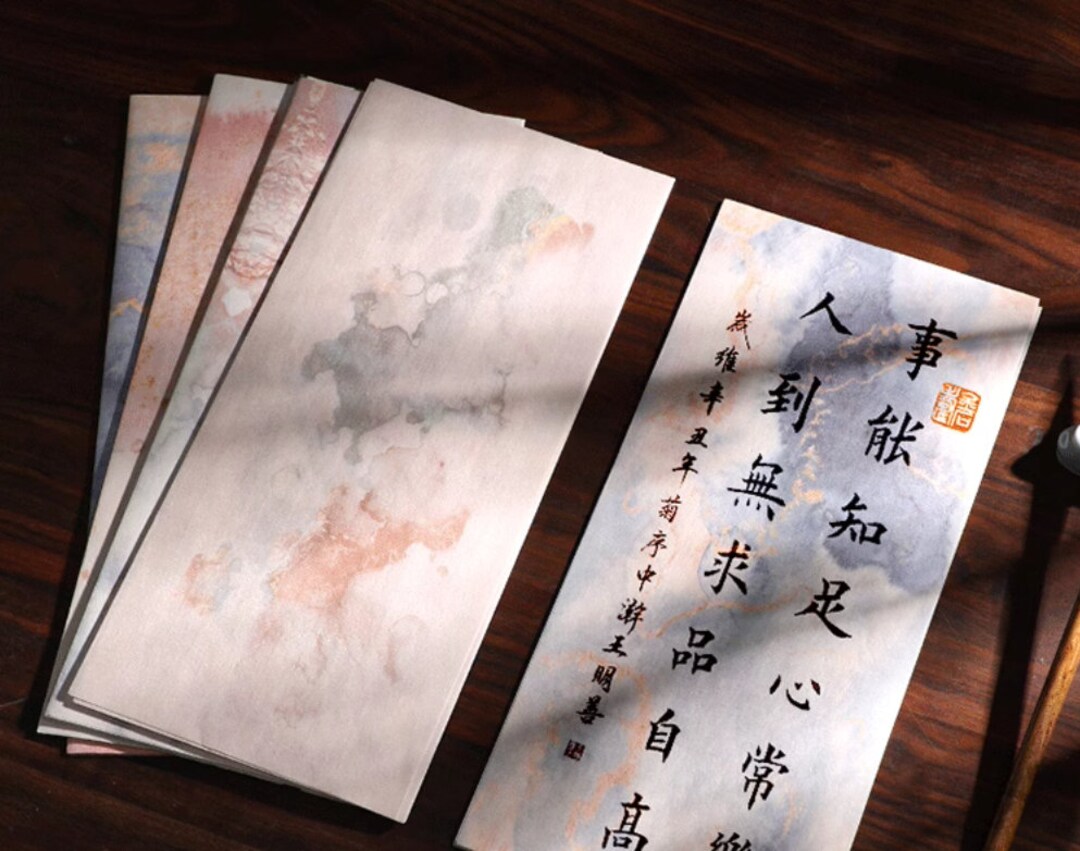 事能知足心常樂
人到無求品自高
歲維辛丑年菊序中澣王明善